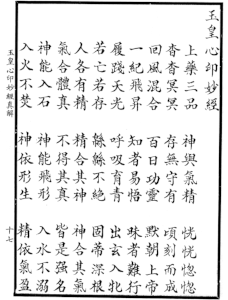 玉皇心印妙經
上藥三品 神與氣精 恍恍惚惚
杳杳冥冥 存無守有 頃刻而成
回風混合 百日功靈 默朝上帝
一紀飛昇 知者易悟 昧者難行
履踐天光 呼吸育青 出玄入牝
若亡若存 緜緜不絕 固蒂深根
人各有精 精合其神 神合其氣
氣合體真 不得其真 皆是強名
神能入石 神能飛形 入水不溺
入火不焚 神依形生 精依氣盈
玉皇心印妙經真解 十七